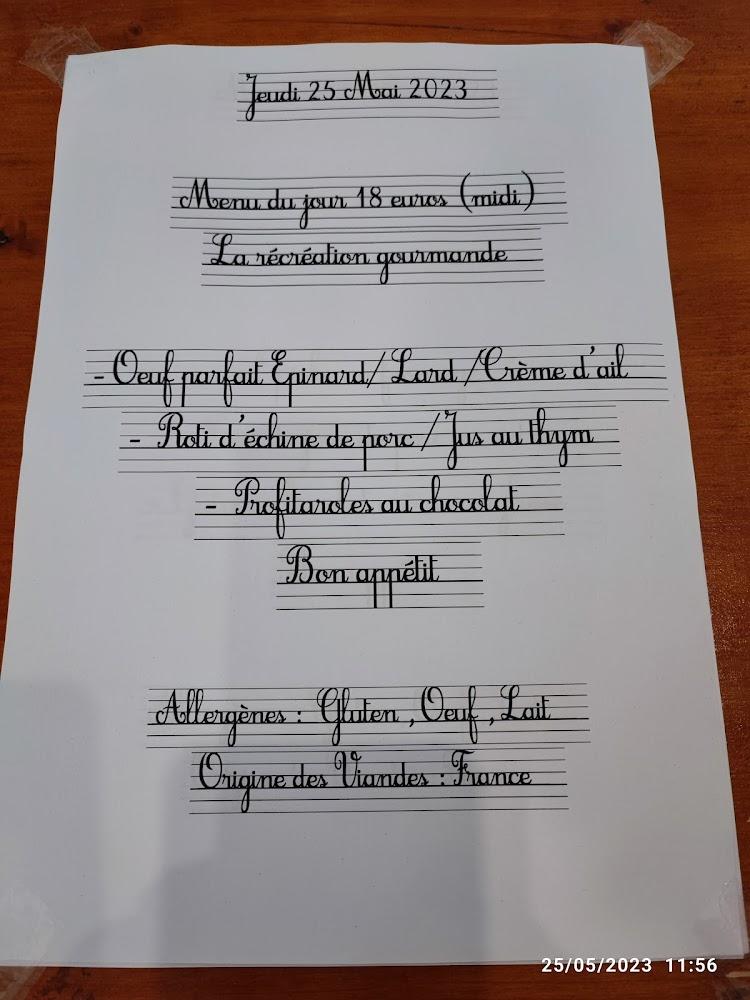 Jeudi 25 Mai 2023
Menu du jour 18 euros (midi)
La récréation gourmande
- Oeuf parfait Epinard/ Lard /Crème d'ail
- Roti d'échine de porc / Jus au thym
- Profitaroles au chocolat
Bon appétit
Allergènes : Gluten , Oeuf , Lait
Origine des Viandes : France
25/05/2023 11:56